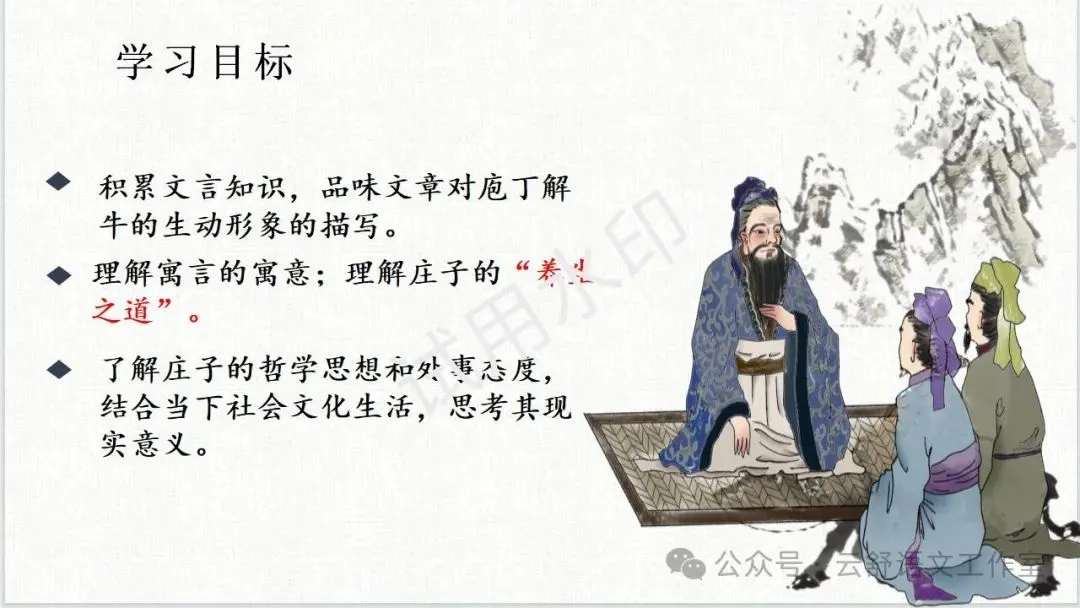 学习目标
积累文言知识，品味文章对庖丁解
牛的生动形象的描写。
理解寓言的寓意；理解庄子的“养生
之道”。
了解庄子的哲学思想和处事态度，
结合当下社会文化生活，思考其现
实意义。
试用水印
公众号 云舒语文工作室